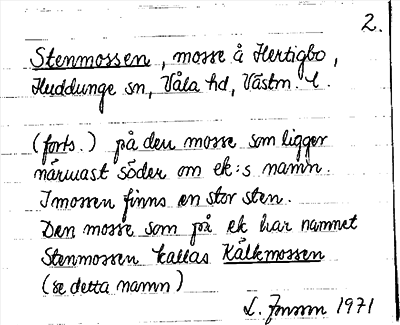 2.
Stenmossen, mosse å Hertigbo,
Huddunge sn, Våla hd, Västm. l.
(forts.) på den mosse som ligger
närmast söder om ek:s namn.
I mossen finns en stor sten.
Den mosse som på ek har namnet
Stenmossen kallas Kälkmossen
(se detta namn)
L. Jonsson 1971